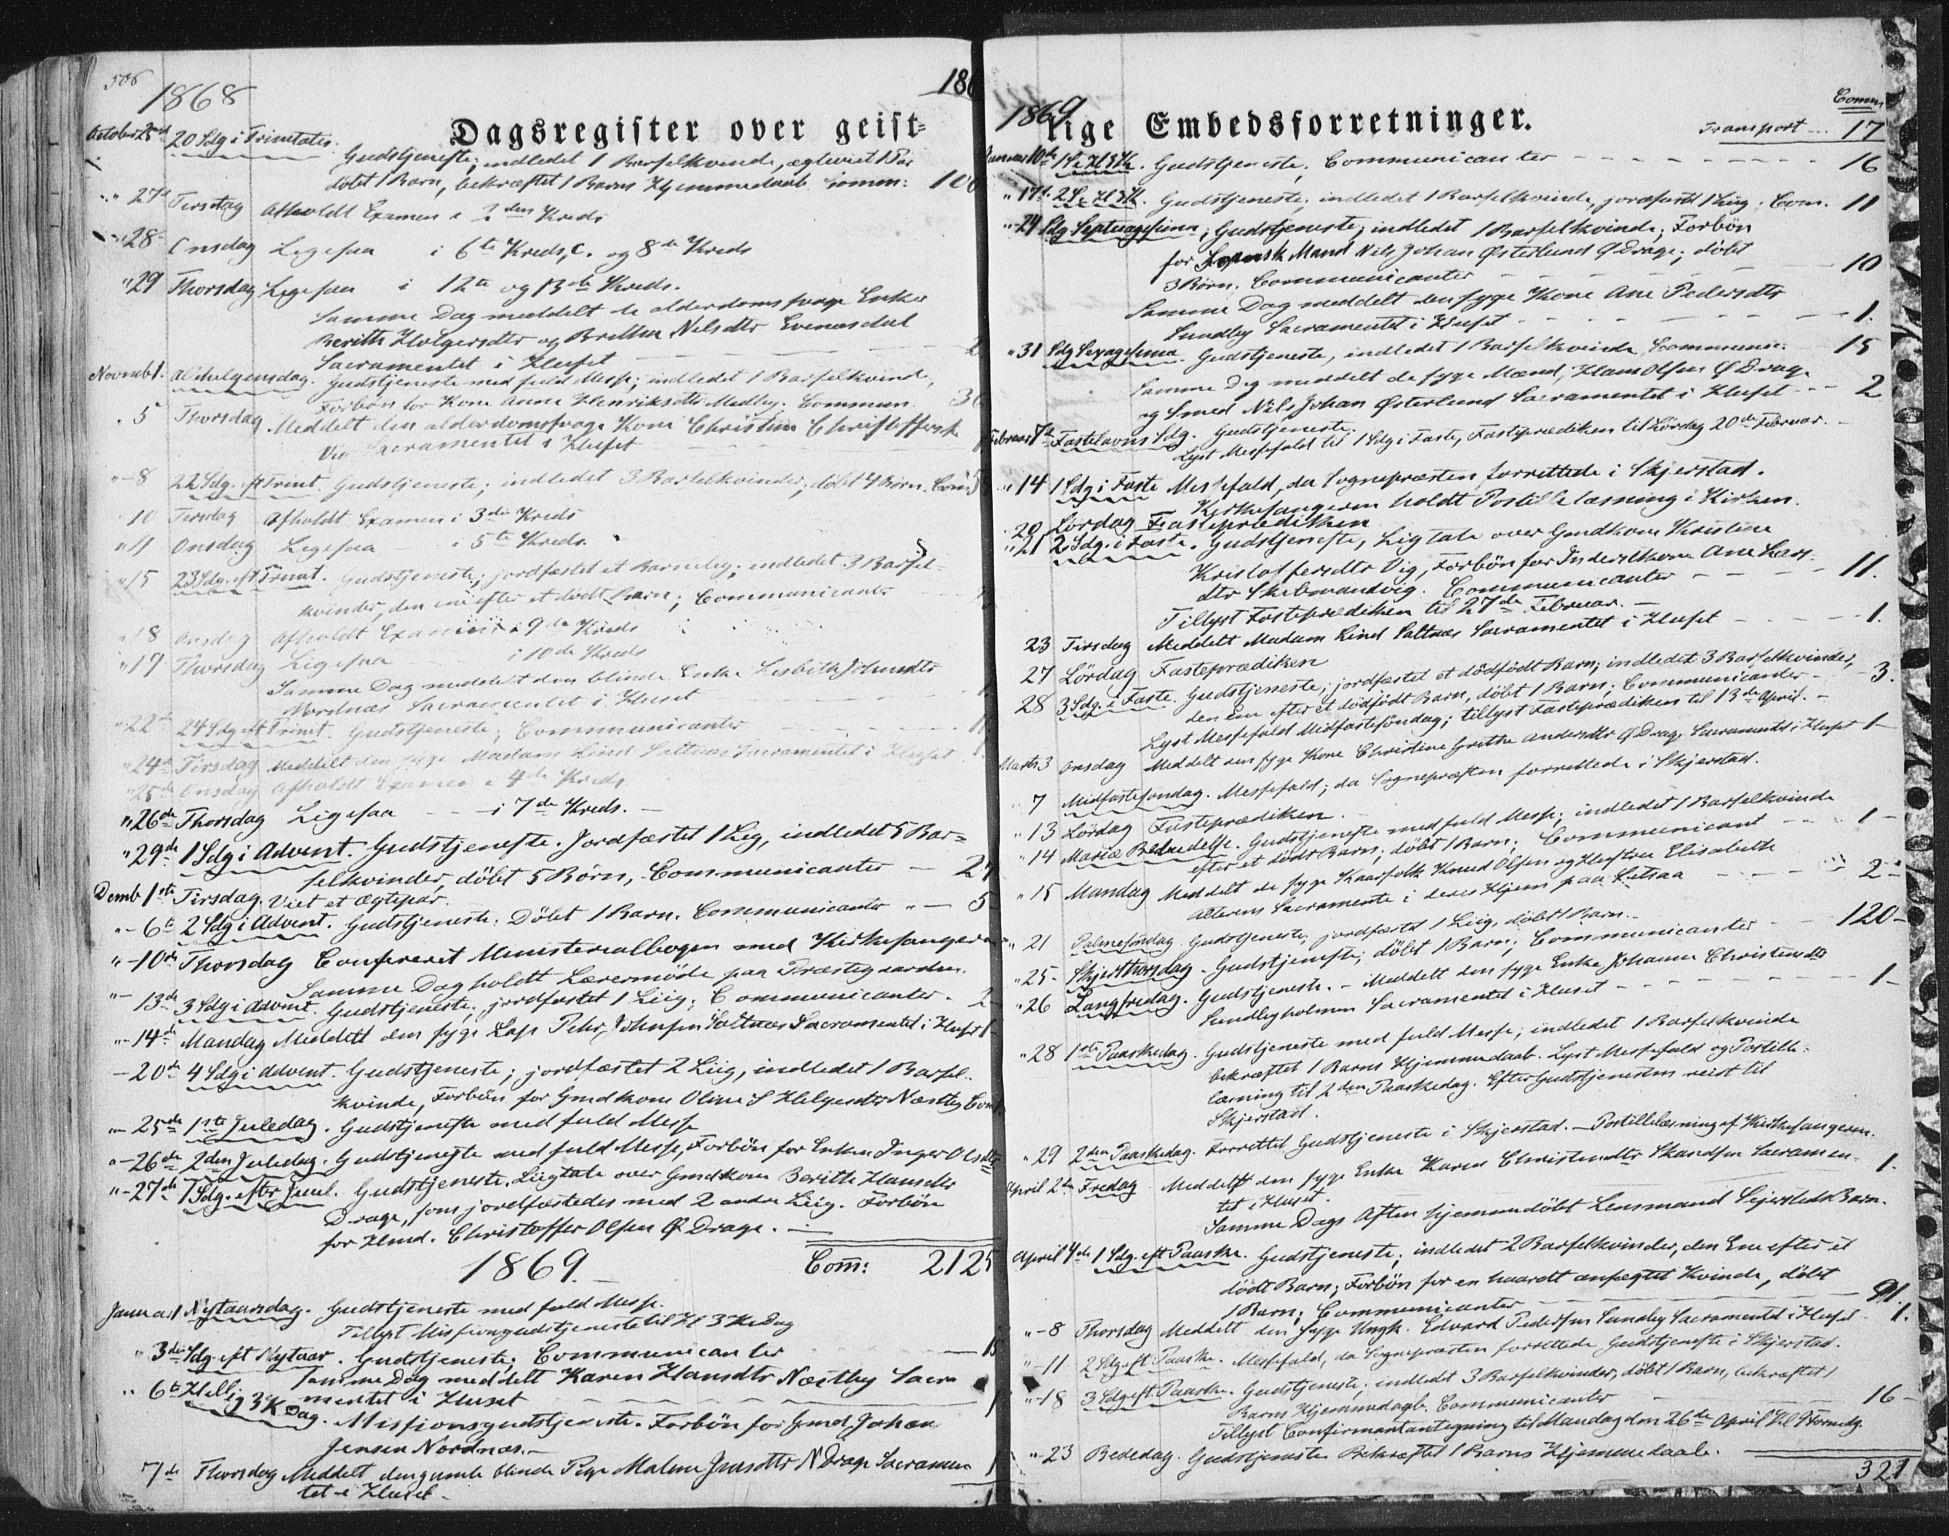 506
1868
186
Dagsregister over geist-
October 25de 20 Sdg i Trinitatis. Gudstjeneste; indledet 1 Barselkvinde, ægteviet 1 Par
døbt 1 Barn, bekræftet 1 Barns Hjemmedaab Comm: 106
" 27de Tirsdag Afholdt Examen i 2den Kreds
" 28 Onsdag Ligesaa i 6te Kreds, C. og 8de Kreds
" 29 Thorsdag Ligesaa i 12te og 13de Kreds.
Samme Dag meddelt de alderdomssvage Enker
Berith Holgersdtr og Britha Nilsdtr Evenesdal
Sacramentet i Huset 2
Novemb 1. Allehelgensdag. Gudstjeneste med fuld Messe; indledet 1 Barselkvinde,
Forbøn for Kone Anne Henriksdtr Medby. Commun. 36
" 5 Thorsdag Meddelt den alderdomssvage Kone Christina Christoffersdtr
Vig Sacramentet i Huset
" 8 22 Sdg. eft Trinit. Gudstjeneste; indledet 3 Barselkvinder, døbt 4 Børn. Com: 5
" 10 Tirsdag Afholdt Examen i 3die Kreds
" 11 Onsdag Ligesaa i 5te Kreds.
" 15 23 Sdg. eft Trinit. Gudstjeneste; jordfæstet et Barnelig; indledet 3 Barsel-
kvinder, den ene efter et dødt Barn; Communicanter
" 18 Onsdag Afholdt Examen i 9de Kreds
" 19 Thorsdag Ligesaa i 10de Kreds
Samme Dag meddelt den blinde Enke Lisbeth Johnsdtr
Nordnæs Sacramentet i Huset
" 22de 24 Sdg eft Trinit. Gudstjeneste; Communicanter
" 24de Tirsdag Meddelt den syge Madam Lind Saltnæs Sacramentet i Huset
" 25de Onsdag Afholdt Examen i 4de Kreds
" 26de Thorsdag Ligesaa i 7de Kreds.
" 29de 1 Sdg i Advent. Gudstjeneste. Jordfæstet 1 Lig, indledet 5 Bar-
selkvinder, døbt 5 Børn, Communicanter 24
Decmb 1ste Tirsdag. Viet et Ægtepar.
" 6te 2 Sdg i Advent. Gudstjeneste. Døbt 1 Barn. Communicanter 5
" 10de Thorsdag Confereret Ministerialbogen med Kirkesangeren
Samme Dag holdt Lærermøde paa Præstegaarden.
" 13de 3 Sdg i Advent. Gudstjeneste; jordfæstet 1 Liig; Communicanter. 2
" 14de Mandag Meddelt den syge Lap Peder Johnsen Saltnæs Sacramentet i Huset 1
" 20de 4 Sdg i Advent. Gudstjeneste; jordfæstet 2 Liig, indledet 1 Barsel-
kvinde, Forbøn for Gmdkone Oline S Helgesdtr Næstby Com:
" 25de 1ste Juledag. Gudstjeneste med fuld Messe
" 26de 2den Juledag. Gudstjeneste med fuld Messe, Forbøn for Enken Inger Olsdtr
" 27de 1 Sdg. efter Juul. Gudstjeneste, Liigtale over Gmdkone Berith Hansdtr
Drage, som jordfæstedes med 2 andre Liig. Forbøn
for Hmd. Christoffer Olsen Ø Drage.
1869. Com: 2125
Januar 1 Nytaarsdag. Gudstjeneste med fuld Messe.
Tillyst Missionsgudstjeneste til Hl 3 K Dag
" 3die Sdg eft Nytaar. Gudstjeneste; Communicanter 15
Samme Dag meddelt Karen Hansdtr Næstby Sacra
" 6te Hellig 3 K Dag. mentet i Huset
Missionsgudstjeneste. Forbøn for Gmd Johan
Jensen Nordnæs.
7de Thorsdag Meddelt den gamle blinde Pige Malene Jensdtr N Drage Sacramen
tet i Huset
1869
lige Embedsforretninger.
Commu
Transport 17
Januar 10de 1 S. e. Hl 3 K. Gudstjeneste; Communicanter 16
" 17de 2 S. e. Hl 3 K. Gudstjeneste; indledet 1 Barselkvinde, jordfæstet 1 Liig. Com. 11
" 24 Sdg Septuagesima; Gudstjeneste; indledet 1 Barselkvinde; Forbøn
for Svensk Mand Nils Johan Østerlund Ø Drage; døbt
3 Børn. Communicanter 10
Samme Dag meddelt den syge Kone Ane Pedersdtr
Sundby Sacramentet i Huset 1.
" 31 Sdg Sexagesima. Gudstjeneste, indledet 1 Barselkvinde Communic: 15
Samme Dag meddelt de syge Mænd, Hans Olsen Ø Drage
og Smed Nils Johan Østerlund Sacramentet i Huset 2
Februar 7de Fastelavns Sdg. Gudstjeneste.
Lyst Messefald til 1 Sdg i Faste, Fasteprædiken til Lørdag 20de Februar.
" 14 1 Sdg i Faste Messefald, da Sognepræsten forrettede i Skjerstad.
Kirkesangeren holdt Postillelæsning i Kirken.
" 20 Lørdag Fasteprædiken
" 21 2 Sdg. i Faste. Gudstjeneste, Ligtale over Gmdkone Kristine
Kristoffersdtr Vig, Forbøn for Inderstkone Ane Lars-
dtr Skibmandvig. Communicanter 11.
Tillyst Fasteprædiken til 27de Februar.
23 Tirsdag Meddelt Madam Lind Saltnæs Sacramentet i Huset 1.
27 Lørdag Fasteprædiken
28 3 Sdg. i Faste. Gudstjeneste; jordfæstet et dødfødt Barn; indledet 3 Barselkvinder,
den ene efter et dødfødt Barn, døbt 1 Barn; Communicanter 3.
Lyst Messefald Midfastesøndag; tillyst Fasteprædiken til 13de April.
Marts 3 Onsdag Meddelt den syge Kone Christine Grethe Andersdtr Ø Drag, Sacramentet i Huset 1
" 7 Midfastesøndag. Messefald; da Sognepræsten forrettede i Skjerstad.
" 13 Lørdag Fasteprædiken.
" 14 Mariæ Bebudelse. Gudstjeneste med fuld Messe; indledet 1 Barselkvinde
efter et dødt Barn; døbt 1 Barn; Communicant 1
" 15 Mandag Meddelt de syge Kaarfolk Knud Olsen og Hustru Elisabeth
Alterens Sacramente i deres Hjem paa Letsaa 2
" 21 Palmesøndag Gudstjeneste, jordfæstet 1 Liig, døbt 1 Barn.
" 25 Skjærthorsdag. Gudstjeneste; døbt 1 Barn; Communicanter 120
" 26 Langfredag. Gudstjeneste. Meddelt den syge Enke Johanna Christensdtr
Sundbyholmen Sacramentet i Huset 1
" 28 1ste Paaskedag. Gudstjeneste med fuld Messe; indledet 1 Barselkvinde
bekræftet 1 Barns Hjemmedaab. Lyst Messefald og Postille-
læsning til 2den Paaskedag. Efter Gudstjenesten reist til
Skjerstad.
" 29 2den Paaskedag. Forrettet Gudstjeneste i Skjerstad. Postillelæsning af Kirkesangeren.
April 2de Fredag. Meddelt den syge Enke Karen Christensdtr Skandsen Sacramen- 1.
tet i Huset.
Samme Dags Aften hjemmedøbt Lensmand Sejersteds Barn.
April 4de 1 Sdg. eft Paaske. Gudstjeneste; indledet 2 Barselkvinder, den Ene efter et
dødt Barn; Forbøn for en haardt anfægtet Kvinde, døbt
1 Barn; Communicanter 91.
" 8 Thorsdag Meddelt den syge Ungk. Edvard Pedersen Sundby Sacramentet i Huset. 1.
" 11 2 Sdg eft Paaske. Messefald, da Sognepræsten forrettede Gudstjeneste i Skjerstad.
" 18 3 Sdg eft. Paaske. Gudstjeneste; indledet 3 Barselkvinder, døbt 1 Barn, bekræftet 1
Barns Hjemmedaab. Communicanter 16
Tillyst Confirmantantegning til Mandag den 26de April Kl 9 Formdg.
" 23 Bededag. Gudstjeneste. Bekræftet 1 Barns Hjemmedaab.
321